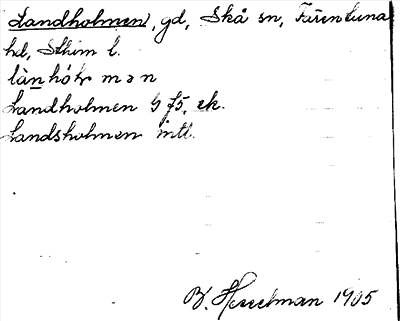 Landholmen, gd, Skå sn, Färentuna
hd, Sthlm l.
làn hól men
Landholmen G f5, ek.
Landsholmen intl.
B. Hesselman 1905